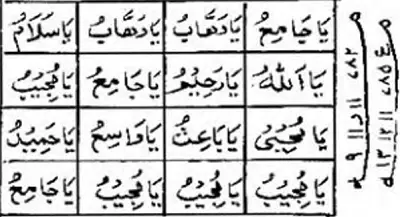 يَا جَامِعُ يَا وَهَّابُ يَا وَهَّابُ يَا سَلَامُ
يَا اَللّٰهُ يَا رَحِيْمُ يَا جَامِعُ يَا مُجِيْبُ
يَا مُحْيِى يَا بَاعِثُ يَا وَاسِعُ يَا حَمِيْدُ
يَا مُجِيْبُ يَا مُجِيْبُ يَا مُجِيْبُ يَا جَامِعُ